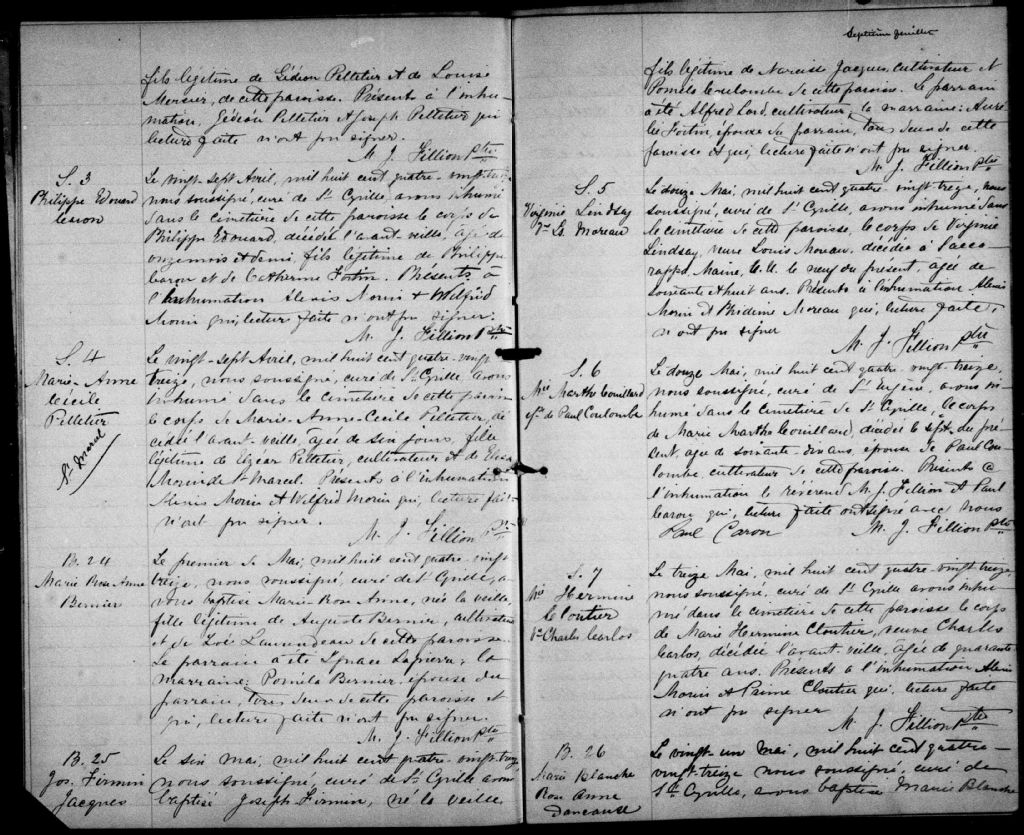 fils légitime de Gédéon Pelletier et de Louise
Mercier, de cette paroisse. Présents à l'inhu-
mation, Gédéon Pelletier & Joseph Pelletier qui
lecture faite n'ont pu signer.
M. J. Fillion Ptre
S. 3
Philippe Edouard
Le vingt-sept Avril, mil huit cent quatre-vingt treize
nous soussigné, curé de St Cyrille, avons inhumé
dans le cimetière de cette paroisse le corps de
Philippe Edouard, décédé l'avant-veille, agé de
onze mois et demi, fils légitime de Philippe
Caron et de Catherine Fortin. Présents à
l'inhumation Alexis Morin & Wilfrid
Morin qui, lecture faite n'ont pu signer.
M. J. Fillion Ptre
S. 4
Marie-Anne
Cécile
Pelletier
St Marcel
Le vingt-sept Avril, mil huit cent quatre-vingt
treize, nous soussigné, curé de St Cyrille avons
inhumé dans le cimetière de cette paroisse
le corps de Marie-Anne-Cécile Pelletier, dé
cédée l'avant-veille, agée de six jours, fille
légitime de Elzéar Pelletier, cultivateur & de
Morin de St Marcel. Présents à l'inhumation
Alexis Morin & Wilfrid Morin qui, lecture faite
n'ont pu signer.
M. J. Fillion Ptre
B. 24
Marie Rose Anne
Bernier
Le premier de Mai, mil huit cent quatre-vingt
treize, nous soussigné, curé de St Cyrille, a-
vons baptisé Marie-Rose Anne, née la veille,
fille légitime de Auguste Bernier, cultivateur
et de Zoé Laurendeau de cette paroisse.
Le parrain a été Ignace Lapierre; la
marraine: Pomela Bernier épouse du
parrain, tous deux de cette paroisse et
qui, lecture faite n'ont pu signer.
M. J. Fillion Ptre
B. 25
Jos. Firmin
Jacques
Le six Mai, mil huit cent quatre-vingt treize
nous soussigné, curé de St Cyrille avons
baptisé Joseph Firmin, né la veille
Septième feuillet
fils légitime de Narcisse Jacques, cultivateur et
Pomela Coulombe de cette paroisse. Le parrain
a été Alfred Lord, cultivateur, la marraine: Auré
lie Fortin, épouse du parrain, tous deux de cette
paroisse et qui, lecture faite n'ont pu signer.
M. J. Fillion Ptre
S. 5
Virginie Lindsay
Vve Ls. Moreau
Le douze Mai, mil huit cent quatre-vingt-treize, nous
soussigné, curé de St Cyrille, avons inhumé dans
le cimetière de cette paroisse, le corps de Virginie
Lindsay, veuve Louis Moreau, décédée à Sacca-
rappa, Maine, E.U. le neuf du présent, agée de
soixante et huit ans. Présents à l'inhumation Alexis
Morin et Moreau qui, lecture faite,
n'ont pu signer
M. J. Fillion ptre
S. 6
Mie Marthe Couillard
ép. de Paul Coulombe
Le douze Mai, mil huit cent quatre-vingt-treize,
nous soussigné, curé de St Eugène, avons in-
humé dans le cimetière de St Cyrille, le corps
de Marie Marthe Couillard, décédée le sept du pré-
sent, agée de soixante-dix ans, épouse de Paul Cou-
lombe cultivateur de cette paroisse. Présents à
l'inhumation le révérend M. J. Fillion & Paul
Caron qui, lecture faite ont signé avec nous
Paul Caron M. J. Fillion Ptre
S. 7
Mie Hermine
Cloutier
Vve Charles Carlos
Le treize Mai, mil huit cent quatre-vingt-treize,
nous soussigné, curé de St Cyrille avons inhu-
mé dans le cimetière de cette paroisse le corps
de Marie Hermine Cloutier, veuve Charles
Carlos, décédée l'avant-veille, agée de quarante
quatre ans. Présents à l'inhumation Alexis
Morin & Cloutier qui, lecture faite
n'ont pu signer
M. J. Fillion Ptre
B. 26
Marie Blanche
Rose Anne
Dancause
Le vingt-un Mai, mil huit cent quatre-
vingt-treize nous soussigné, curé de
St Cyrille, avons baptisé Marie Blanche